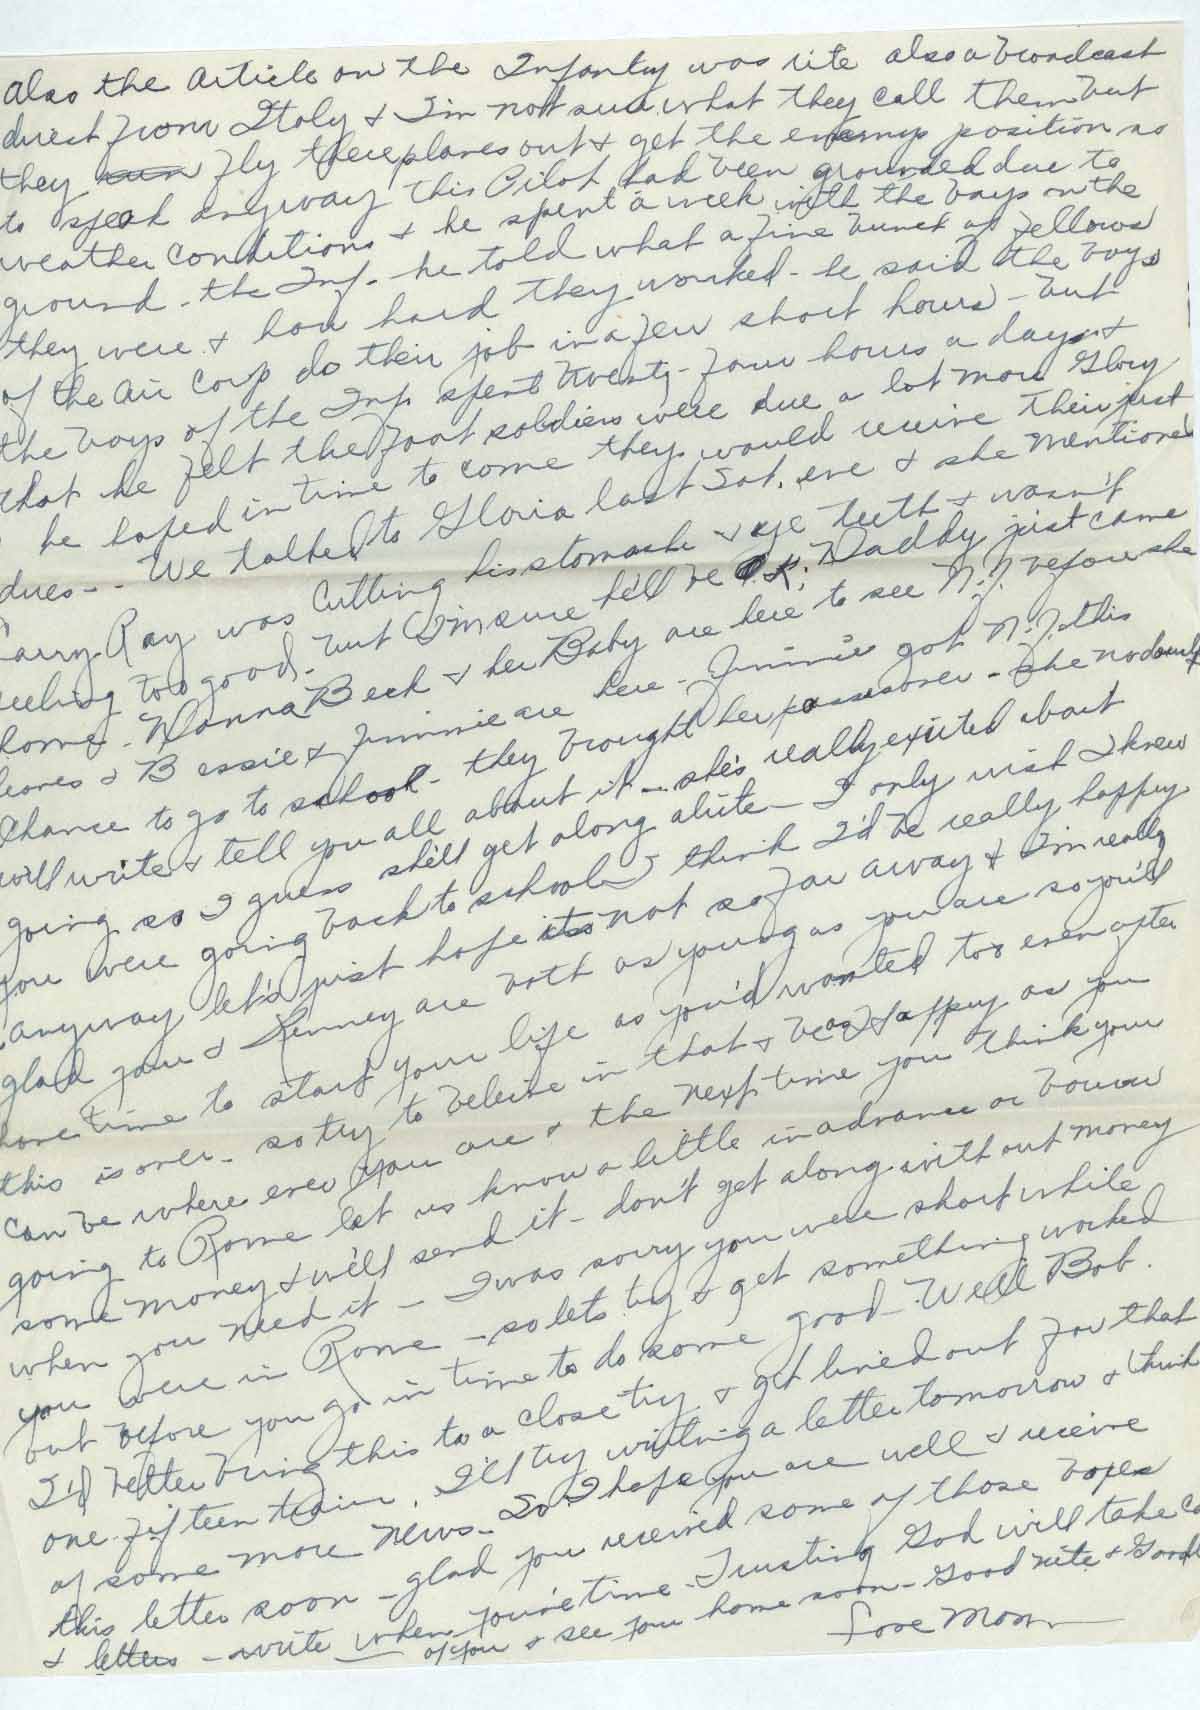 also the article on the Infantry was rite also a broadcast
direct from Italy & I'm not sure what they call them but
they run fly there planes out & get the enemys position so
to speak anyway this Pilot had been grounded due to
weather conditions & he spent a week with the boys on the
ground - the Inf. he told what a fine bunch of fellows
they were & how hard they worked - he said the boys
of the Air Corp do their job in a few short hours - but
the boys of the Inf. spent twenty-four hours a day &
that he felt the foot soldiers were due a lot more Glory
he hoped in time to come they would receive their just
dues - - We talked to Gloria last Sat. eve & she mentioned
Larry Ray was cutting his stomache & eye teeth & wasn't
feeling too good. but I'm sure he'll be O.K. Daddy just came
home. Donna Beck & her Baby are here to see N.J. before she
leaves & Bessie & Jimmie are here - Jimmie got N.J. this
chance to go to school - they brought her pass over - she no doubt
will write & tell you all about it - she's really exited about
going so I guess she'll get along alrite - I only wish I knew
you were going back to school I think I'd be really happy
anyway let's just hope its not so far away & I'm really
glad you & Lenney are both as young as you are so you'll
have time to start your life as you'd wanted too even after
this is over - so try to beleive in that & be as Happy as you
can be where ever you are & the next time you think your
going to Rome let us know a little in advance or borrow
some money & we'll send it - don't get along without money
when you need it - I was sorry you were short while
you were in Rome - so lets try & get something worked
out before you go in time to do some good - Well Bob.
I'd better bring this to a close try & get lined out for that
one fifteen train. I'll try writing a letter tomorrow & think
of some more news - So I hope you are well & receive
this letter soon - glad you received some of those boxes
& letters - write when you've time - Trusting God will take
of you & see you home soon - Good nite &
Love Mom